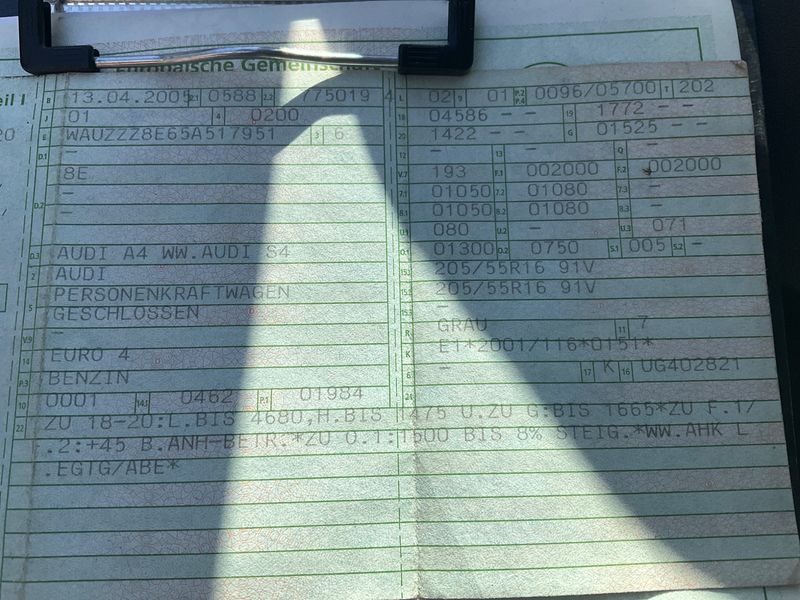 Europäische Gemeinschaft
eil I B 13.04.2005 2.1 0588 2.2 775019 4 L 02 9 01 P.2 P.4 0096/05700 T 202
J 01 4 0200 18 04586 -- 19 1772 --
20 E WAUZZZ8E65A517951 3 6 20 1422 -- G 01525 --
D.1 - 12 - 13 - Q -
8E V.7 193 F.1 002000 F.2 002000
D.2 - 7.1 01050 7.2 01080 7.3 -
- 8.1 01050 8.2 01080 8.3 -
U.1 080 U.2 - U.3 071
D.3 AUDI A4 WW.AUDI S4 O.1 01300 O.2 0750 S.1 005 S.2 -
2 AUDI 15.1 205/55R16 91V
PERSONENKRAFTWAGEN 15.2 205/55R16 91V
5 GESCHLOSSEN 15.3 -
V.9 - R GRAU 11 7
14 EURO 4 K E1*2001/116*0151*
P.3 BENZIN 6 - 17 K 16 UG402821
10 0001 14.1 0462 P.1 01984 21
22 ZU 18-20:L.BIS 4680,H.BIS 1475 U.ZU G:BIS 1665*ZU F.1/
.2:+45 B.ANH-BETR.*ZU O.1:1500 BIS 8% STEIG.*WW.AHK L
.EGTG/ABE*